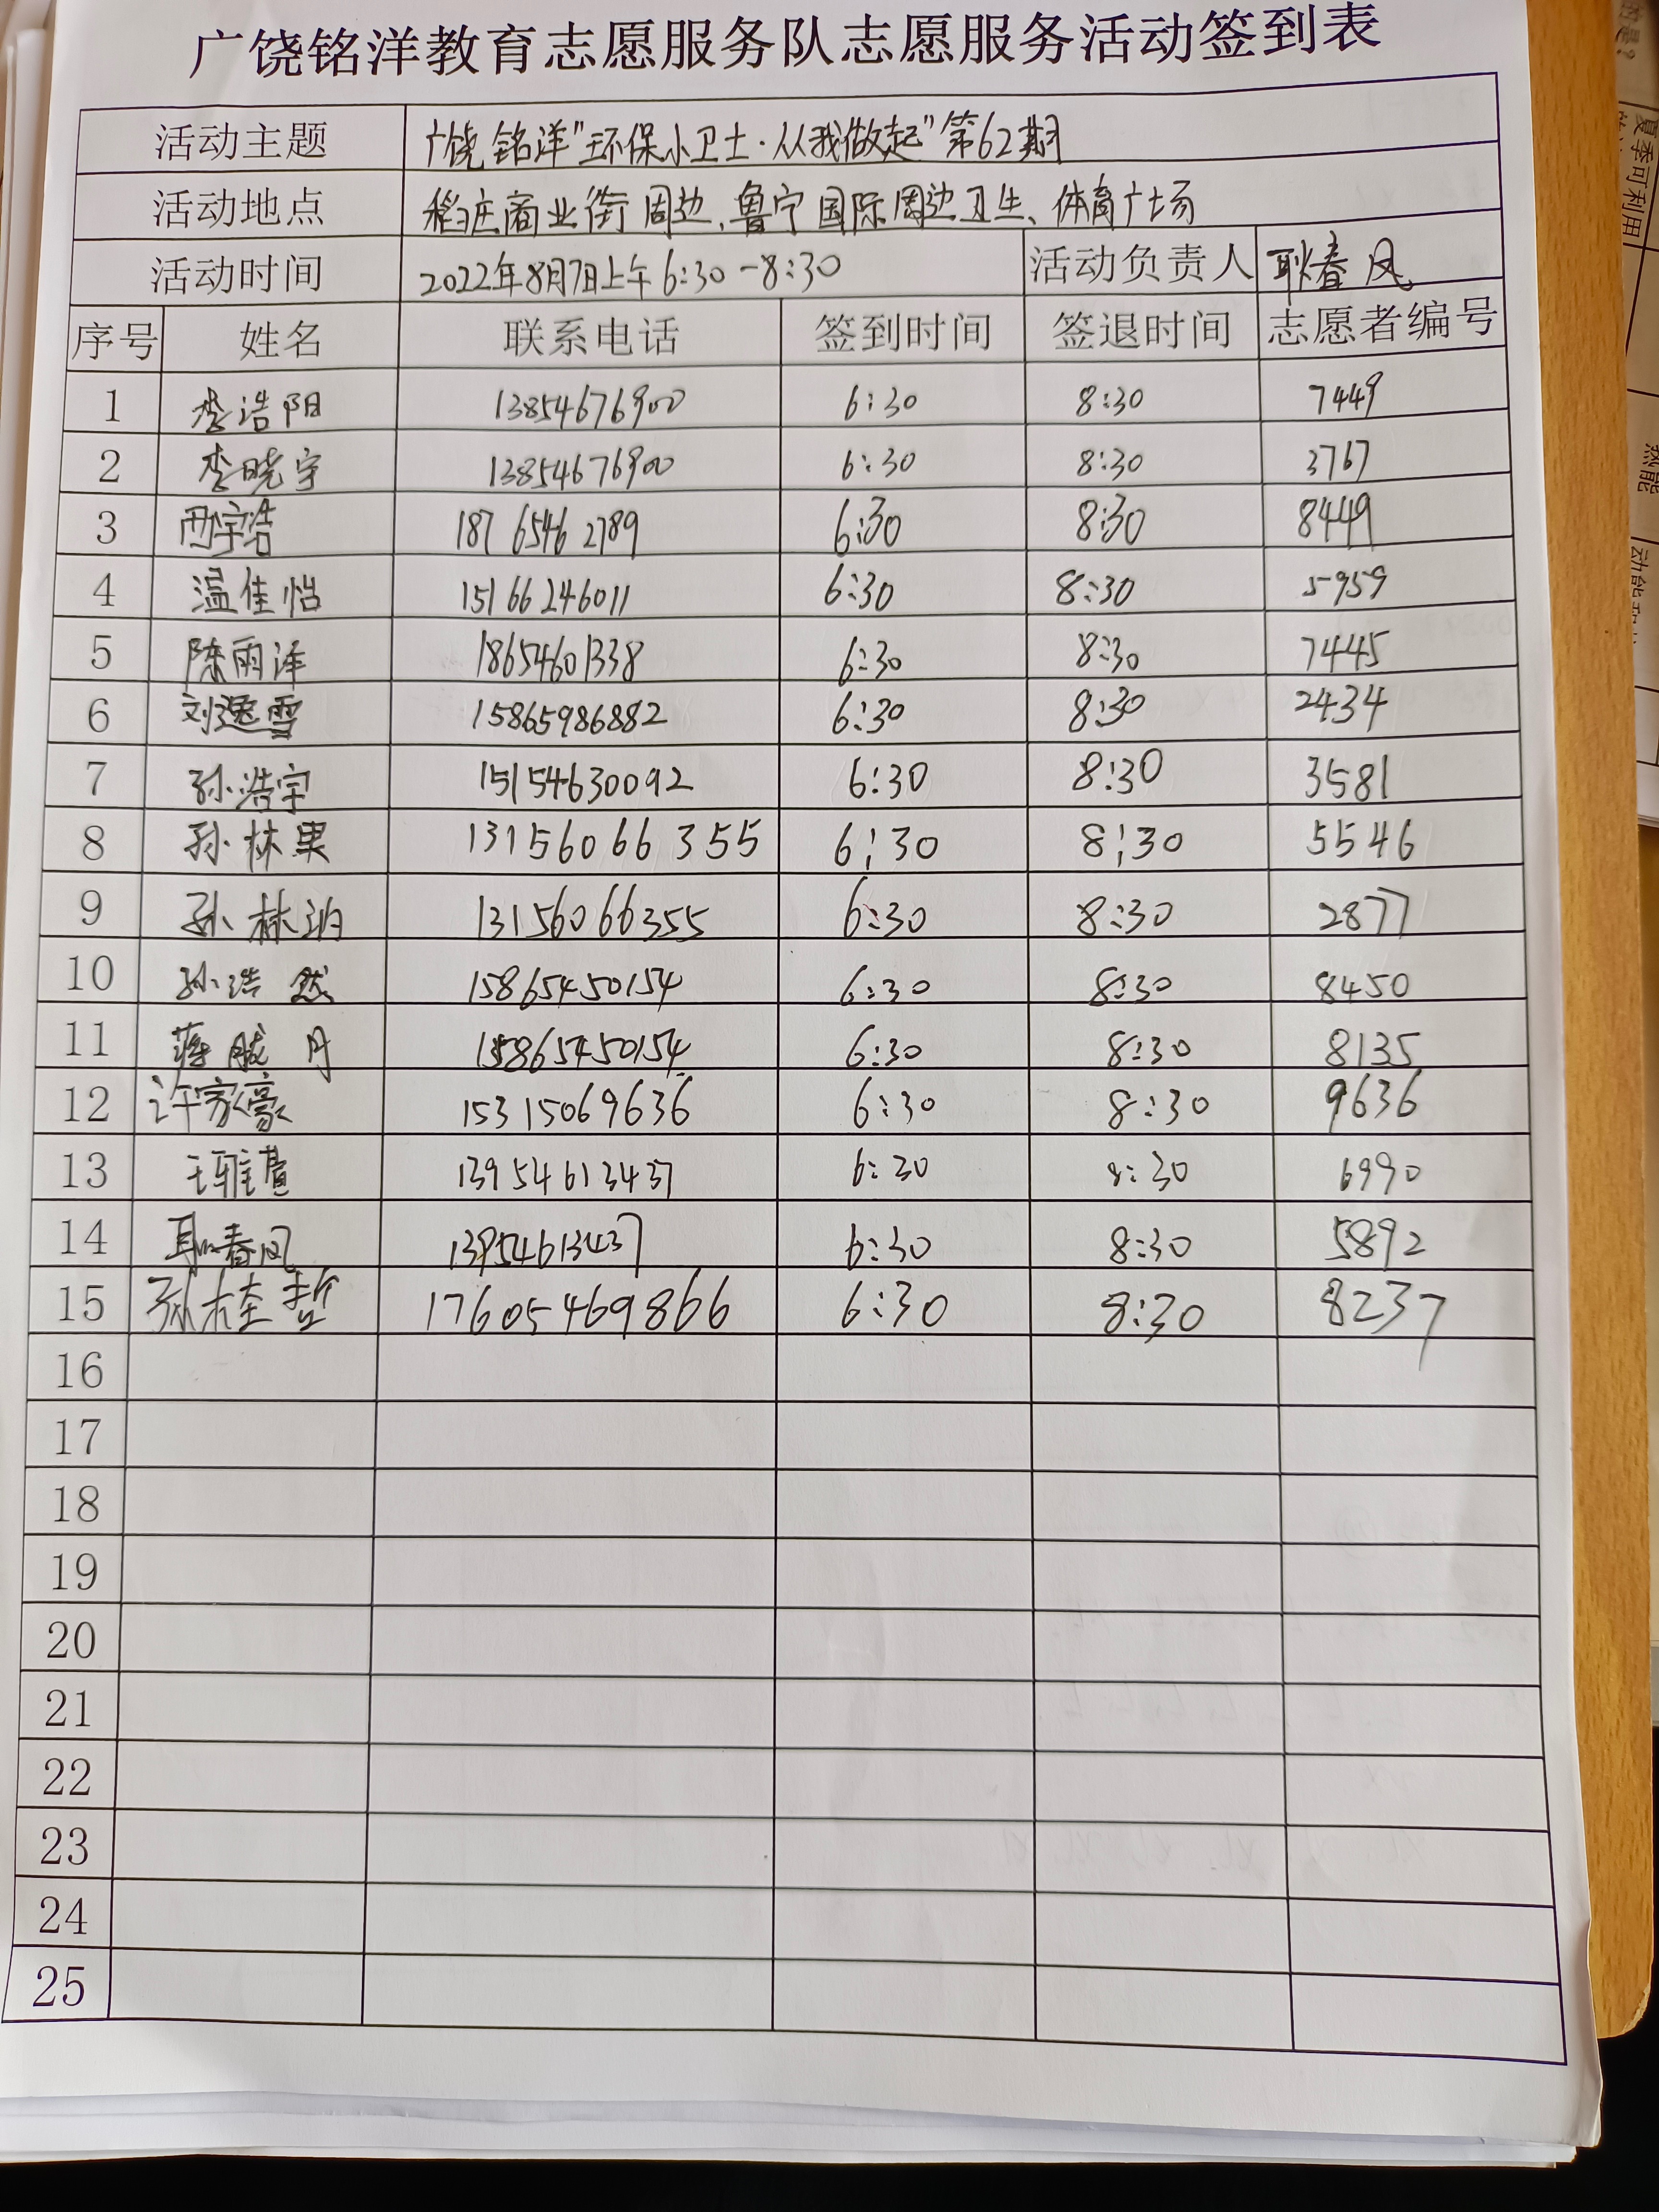 广饶铭洋教育志愿服务队志愿服务活动签到表
活动主题 广饶铭洋"环保小卫士·从我做起"第62期
活动地点 稻庄商业街周边、鲁宁国际周边卫生、体育广场
活动时间 2022年8月7日上午6:30-8:30 活动负责人 耿春凤
序号 姓名 联系电话 签到时间 签退时间 志愿者编号
1 李浩阳 13854676900 6:30 8:30 7449
2 李晓宇 13854676900 6:30 8:30 3767
3 邢宇浩 187 6546 2789 6:30 8:30 8449
4 温佳怡 15166246011 6:30 8:30 5959
5 陈雨泽 18654601338 6:30 8:30 7445
6 刘逸雪 15865986882 6:30 8:30 2434
7 孙浩宇 15154630092 6:30 8:30 3581
8 孙林果 13156066355 6:30 8:30 5546
9 孙林 13156066355 6:30 8:30 2877
10 孙浩然 15865450154 6:30 8:30 8450
11 蒋胧月 15865450154 6:30 8:30 8135
12 许家豪 15315069636 6:30 8:30 9636
13 王雅萱 13954613437 6:30 8:30 6990
14 耿春凤 13954613437 6:30 8:30 5892
15 孙桂哲 17605469866 6:30 8:30 8237
16
17
18
19
20
21
22
23
24
25
夏季可利用
热能